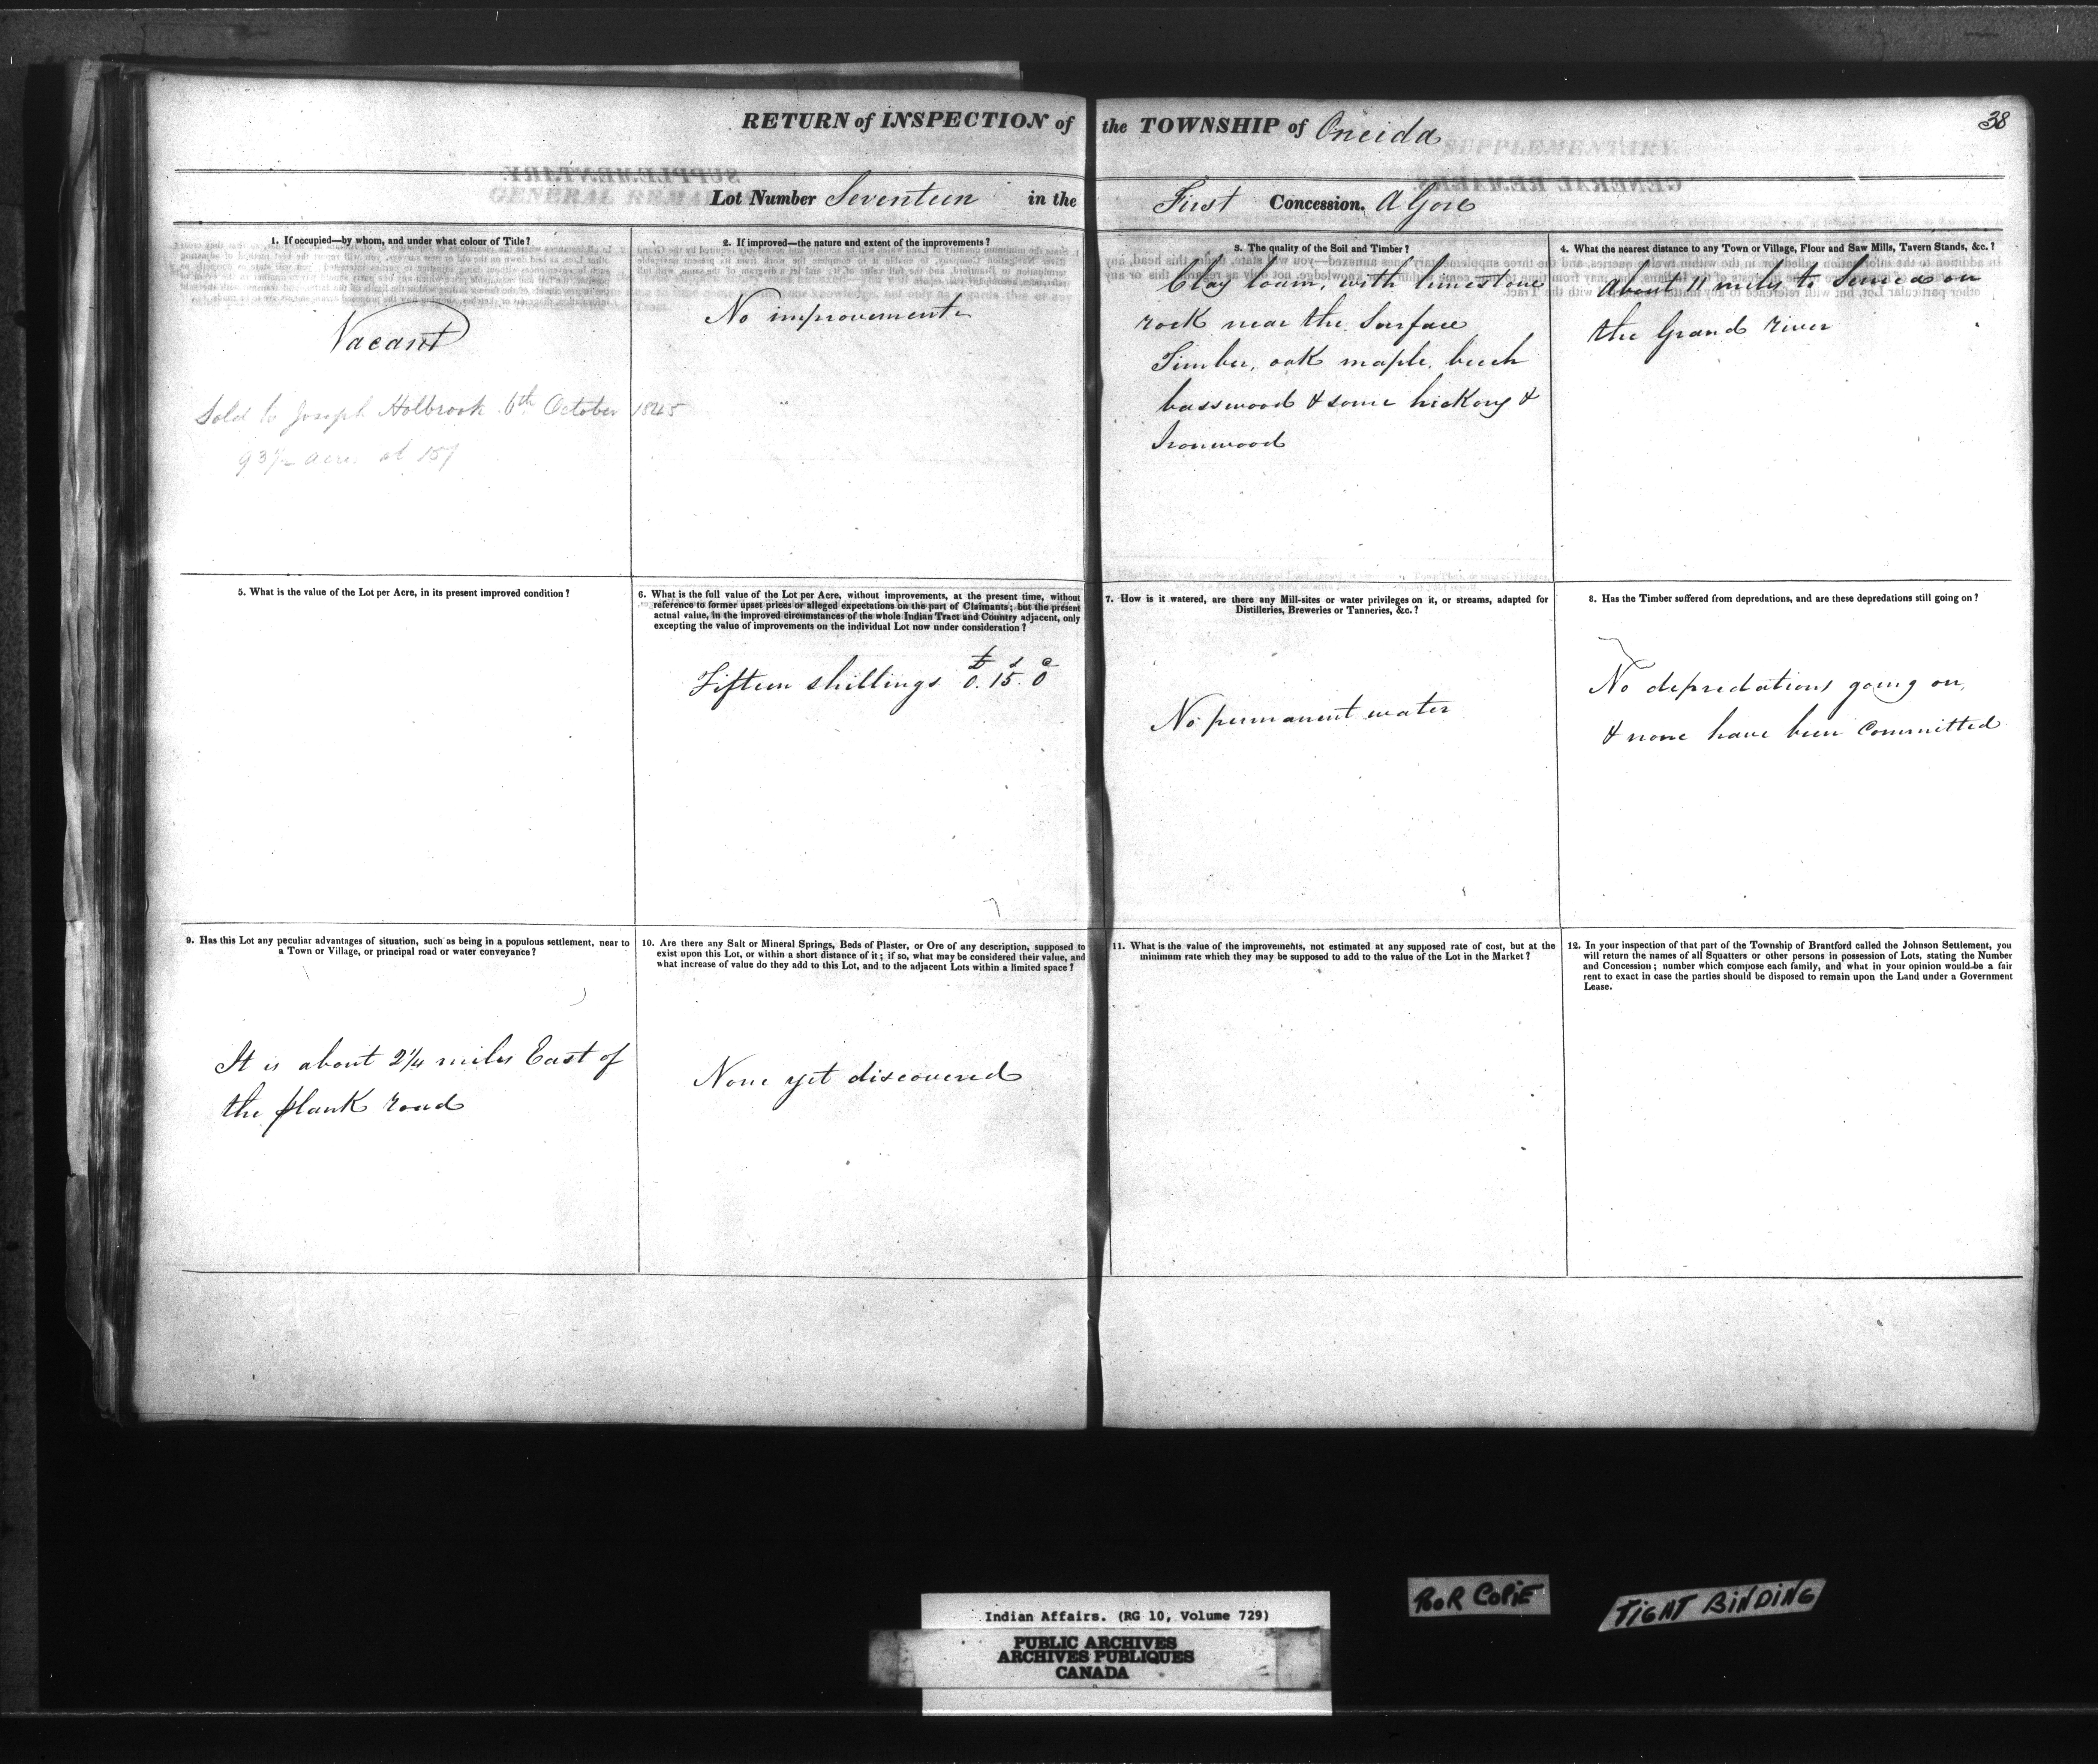 38
RETURN of INSPECTION of the TOWNSHIP of Oneida
Lot Number Seventeen in the First Concession. A Gore
1. If occupied—by whom, and under what colour of Title?
Vacant
Sold to Joseph Holbrook 6th October 1845
93½ acres at 15/
2. If improved—the nature and extent of the improvements?
No improvements
3. The quality of the Soil and Timber?
Clay loam, with limestone
rock near the Surface
Timber, oak maple, beech
basswood & some hickory &
Ironwood
4. What the nearest distance to any Town or Village, Flour and Saw Mills, Tavern Stands, &c.?
About 11 miles to Seneca on
the Grand River
5. What is the value of the Lot per Acre, in its present improved condition?
6. What is the full value of the Lot per Acre, without improvements, at the present time, without
reference to former upset prices or alleged expectations on the part of Claimants; but the present
actual value, in the improved circumstances of the whole Indian Tract and Country adjacent, only
excepting the value of improvements on the individual Lot now under consideration?
£ s d
Fifteen shillings 0. 15. 0
7. How is it watered, are there any Mill-sites or water privileges on it, or streams, adapted for
Distilleries, Breweries or Tanneries, &c.?
No permanent water
8. Has the Timber suffered from depredations, and are these depredations still going on?
No depredations going on,
& none have been Committed
9. Has this Lot any peculiar advantages of situation, such as being in a populous settlement, near to
a Town or Village, or principal road or water conveyance?
It is about 2¼ miles East of
the plank road
10. Are there any Salt or Mineral Springs, Beds of Plaster, or Ore of any description, supposed to
exist upon this Lot, or within a short distance of it; if so, what may be considered their value, and
what increase of value do they add to this Lot, and to the adjacent Lots within a limited space?
None yet discovered
11. What is the value of the improvements, not estimated at any supposed rate of cost, but at the
minimum rate which they may be supposed to add to the value of the Lot in the Market?
12. In your inspection of that part of the Township of Brantford called the Johnson Settlement, you
will return the names of all Squatters or other persons in possession of Lots, stating the Number
and Concession; number which compose each family, and what in your opinion would be a fair
rent to exact in case the parties should be disposed to remain upon the Land under a Government
Lease.
Indian Affairs. (RG 10, Volume 729)
PUBLIC ARCHIVES
ARCHIVES PUBLIQUES
CANADA
POOR COPIE
TIGHT BINDING